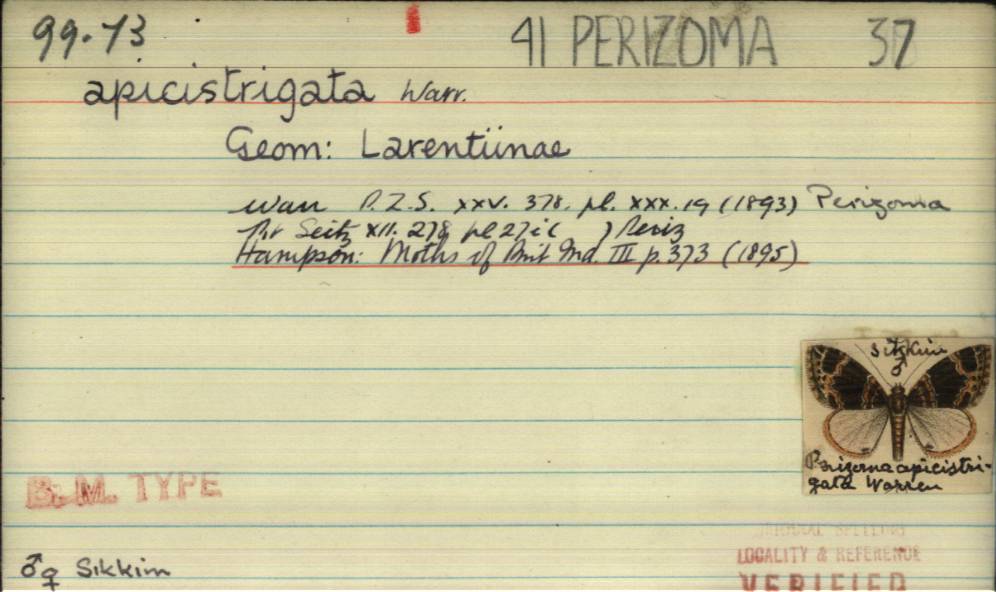 99.73
41 PERIZOMA 37
apicistrigata Warr.
Geom: Larentiinae
Warr P.Z.S. xxv. 378. pl. xxx. 19 (1893) Perizoma
Seitz XII. 278 pl 27 i ( ) Periz
Hampson: Moths of Brit Ind. III p. 373 (1895)
Sikkim
♂
Perizoma apicistri-
gata Warren
B. M. TYPE
ORIGINAL SPELLING
LOCALITY & REFERENCE
VERIFIED
♂♀ Sikkim